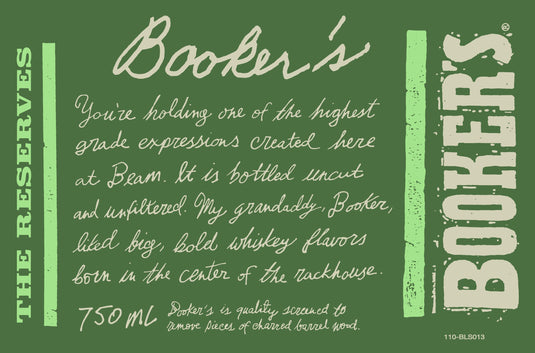 THE RESERVES
Booker's
You're holding one of the highest
grade expressions created here
at Beam. It is bottled uncut
and unfiltered. My grandaddy, Booker,
liked big, bold whiskey flavors
born in the center of the rackhouse.
750 ML
Booker's is quality screened to
remove pieces of charred barrel wood.
BOOKER'S®
110-BLS013